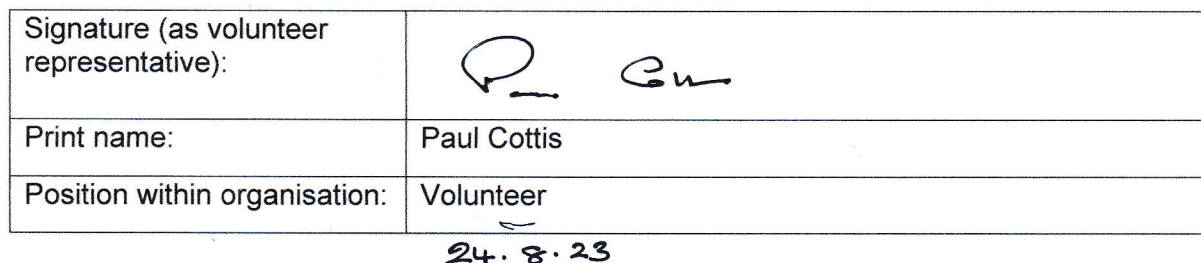 Signature (as volunteer
representative):
Print name: Paul Cottis
Position within organisation: Volunteer
24.8.23